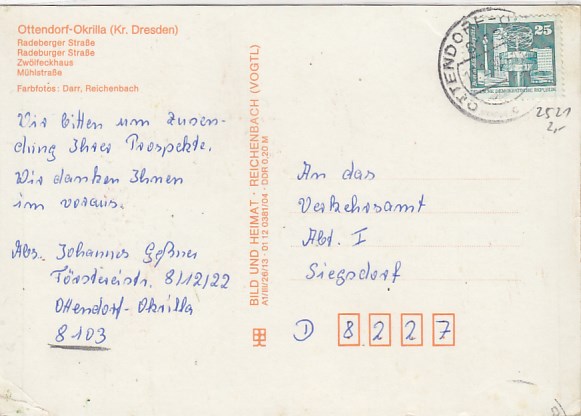 Ottendorf-Okrilla (Kr. Dresden)
Radeberger Straße
Radeburger Straße
Zwölfeckhaus
Mühlstraße
Farbfotos: Darr, Reichenbach
Wir bitten um Zusen-
dung Ihrer Prospekte.
Wir danken Ihnen
im voraus.
Abs. Johannes Geßner
8/12/22
Ottendorf-Okrilla
8103
BILD UND HEIMAT · REICHENBACH (VOGTL)
A1/III/26/13 · 01 12 0381/04 · DDR 0,20 M
OTTENDORF-O
25
2521
2,-
An das
Verkehrsamt
Abt. I
Siegsdorf
D 8227